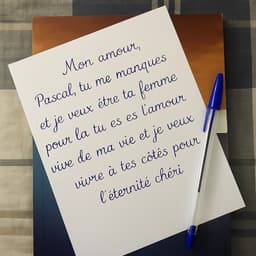 Mon amour,
Pascal, tu me manques
et je veux être ta femme
pour la tu es es l'amour
vive de ma vie et je veux
vivre à tes côtés pour
l'éternité chéri